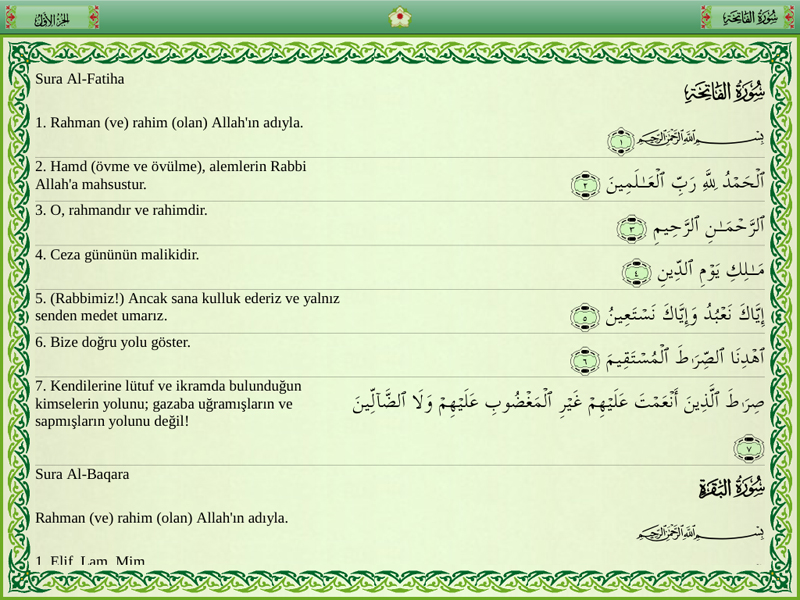 الجزء الأول
سورة الفاتحة
Sura Al-Fatiha
سورة الفاتحة
1. Rahman (ve) rahim (olan) Allah'ın adıyla.
بِسْمِ ٱللَّهِ ٱلرَّحْمَٰنِ ٱلرَّحِيمِ ١
2. Hamd (övme ve övülme), alemlerin Rabbi
Allah'a mahsustur.
ٱلْحَمْدُ لِلَّهِ رَبِّ ٱلْعَـٰلَمِينَ ٢
3. O, rahmandır ve rahimdir.
ٱلرَّحْمَـٰنِ ٱلرَّحِيمِ ٣
4. Ceza gününün malikidir.
مَـٰلِكِ يَوْمِ ٱلدِّينِ ٤
5. (Rabbimiz!) Ancak sana kulluk ederiz ve yalnız
senden medet umarız.
إِيَّاكَ نَعْبُدُ وَإِيَّاكَ نَسْتَعِينُ ٥
6. Bize doğru yolu göster.
ٱهْدِنَا ٱلصِّرَٰطَ ٱلْمُسْتَقِيمَ ٦
7. Kendilerine lütuf ve ikramda bulunduğun
kimselerin yolunu; gazaba uğramışların ve
sapmışların yolunu değil!
صِرَٰطَ ٱلَّذِينَ أَنْعَمْتَ عَلَيْهِمْ غَيْرِ ٱلْمَغْضُوبِ عَلَيْهِمْ وَلَا ٱلضَّآلِّينَ
٧
Sura Al-Baqara
سورة البقرة
Rahman (ve) rahim (olan) Allah'ın adıyla.
بِسْمِ ٱللَّهِ ٱلرَّحْمَٰنِ ٱلرَّحِيمِ
1. Elif, Lam, Mim